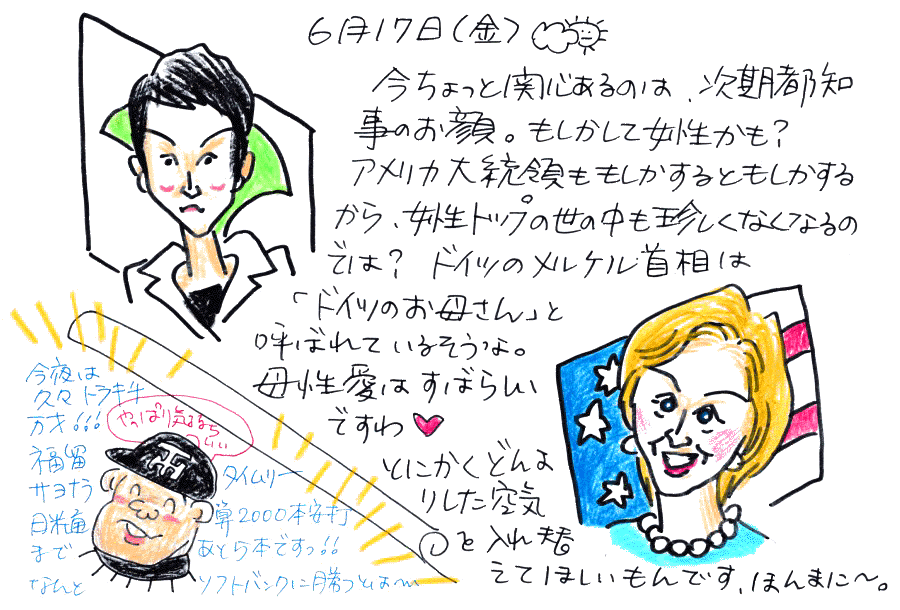 6月17日(金)
今ちょっと関心あるのは、次期都知
事のお顔。もしかして女性かも?
アメリカ大統領ももしかするともしかする
から、女性トップの世の中も珍しくなくなるの
では? ドイツのメルケル首相は
「ドイツのお母さん」と
呼ばれているそうな。
母性愛はすばらしい
ですわ
とにかくどんよ
りした空気
を入れ替
えてほしいもんです、ほんまに〜。
今夜は
久々トラキチ
万才!!!
やっぱり
福留 タイムリー
サヨナラ
日米通算2000本安打
まで あと5本ですっ!!
なんと ソフトバンクに勝つとは〜